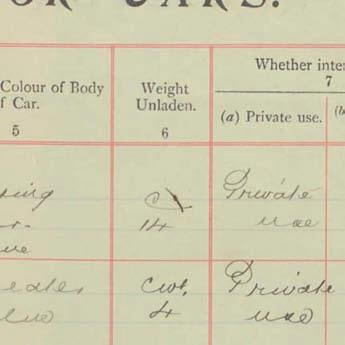 OR CARS.
Colour of Body
f Car.
5
Weight
Unladen.
6
Whether inte
7
(a) Private use.
(b
14
Private
use
Cwt.
4
Private
use